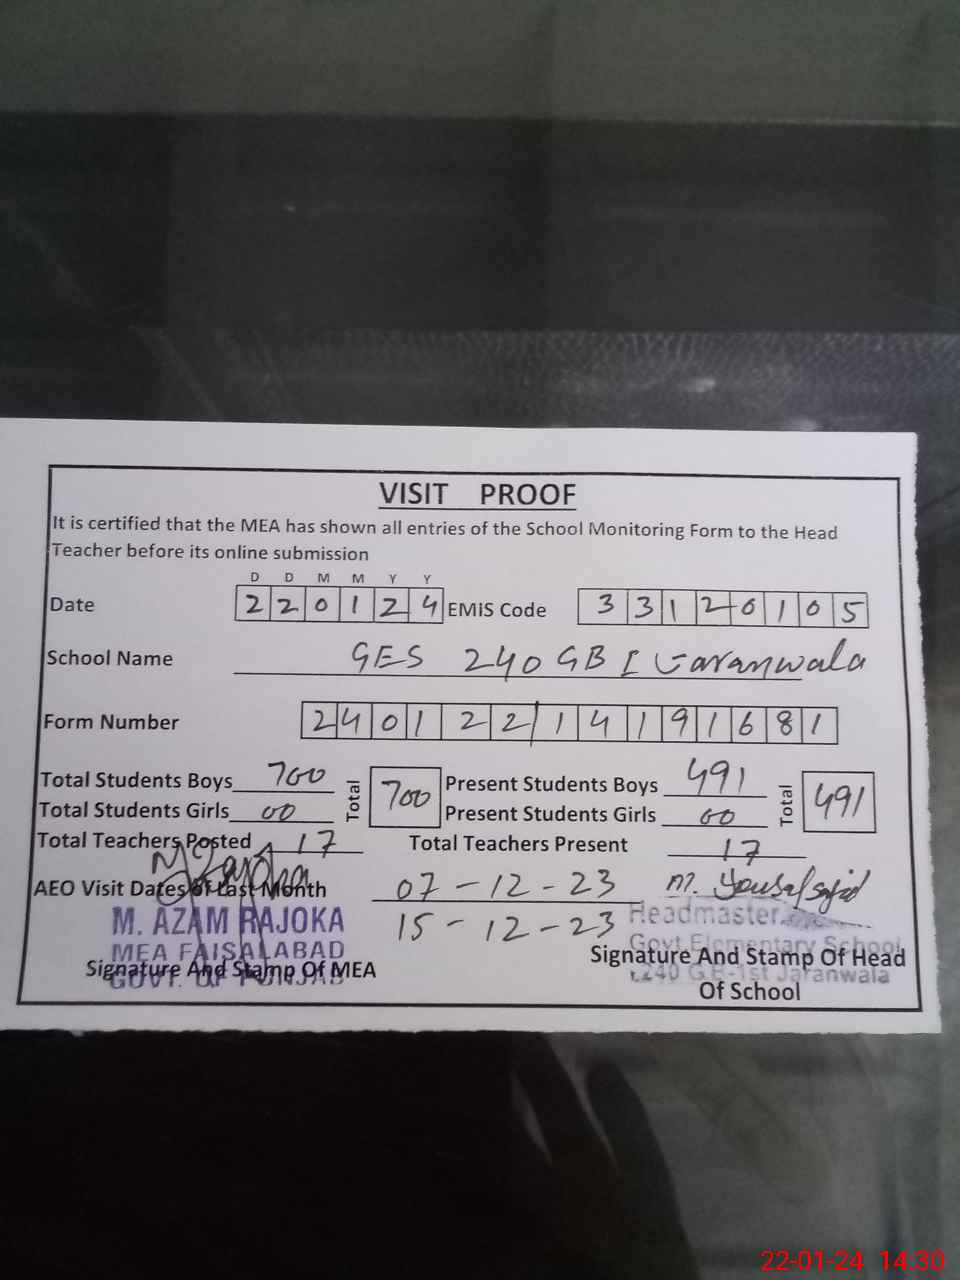 VISIT PROOF
It is certified that the MEA has shown all entries of the School Monitoring Form to the Head
Teacher before its online submission
D D M M Y Y
Date 2 2 0 1 2 4 EMIS Code 3 3 1 2 0 1 0 5
School Name GES 240 GB I Jaranwala
Form Number 2 4 0 1 2 2 1 4 1 9 1 6 8 1
Total Students Boys 700 Total 700 Present Students Boys 491 Total 491
Total Students Girls 00 Present Students Girls 00
Total Teachers Posted 17 Total Teachers Present 17
AEO Visit Dates of Last Month 07-12-23 M. Yousaf Sajid
15-12-23
M. AZAM RAJOKA
MEA FAISALABAD
GOVT. OF PUNJAB
Signature And Stamp Of MEA
Headmaster
Govt. Elementary School
240 G.B-1st Jaranwala
Signature And Stamp Of Head
Of School
22-01-24 14:30